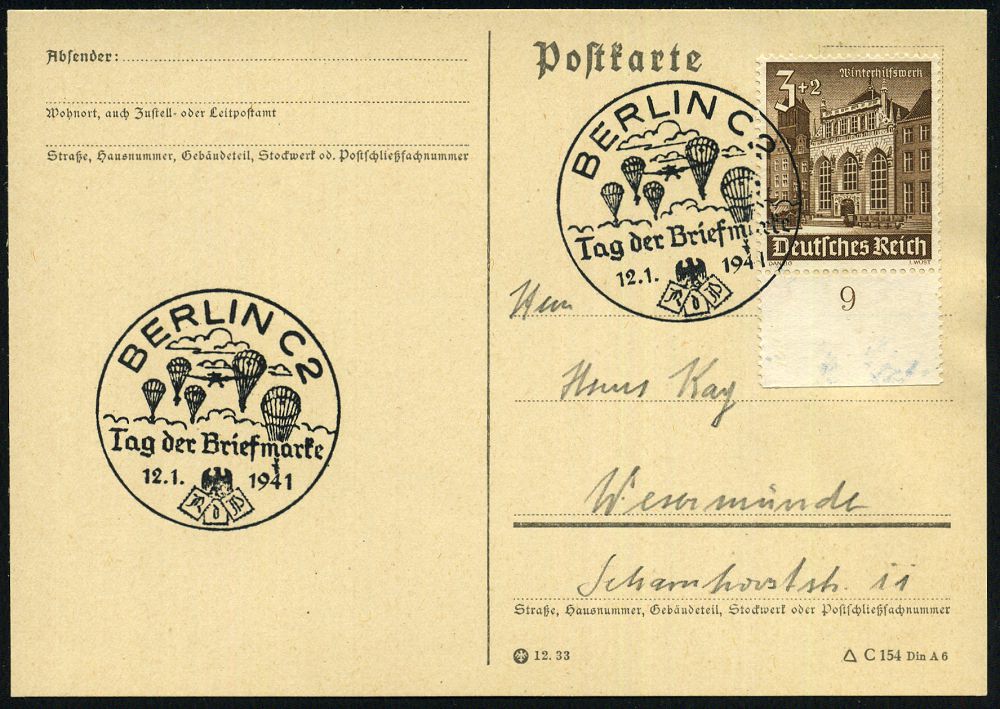 Absender:
Wohnort, auch Zustell- oder Leitpostamt
Straße, Hausnummer, Gebäudeteil, Stockwerk od. Postschließfachnummer
BERLIN C2
Tag der Briefmarke
12.1. 1941
R d P
Postkarte
3+2 Winterhilfswerk
Deutsches Reich
DANZIG I.WÜST
9
BERLIN C2
Tag der Briefmarke
12.1. 1941
R d P
Herrn
Hans Kay
Wesermünde
Scharnhorststr. 11
Straße, Hausnummer, Gebäudeteil, Stockwerk oder Postschließfachnummer
12.33
C 154 Din A 6